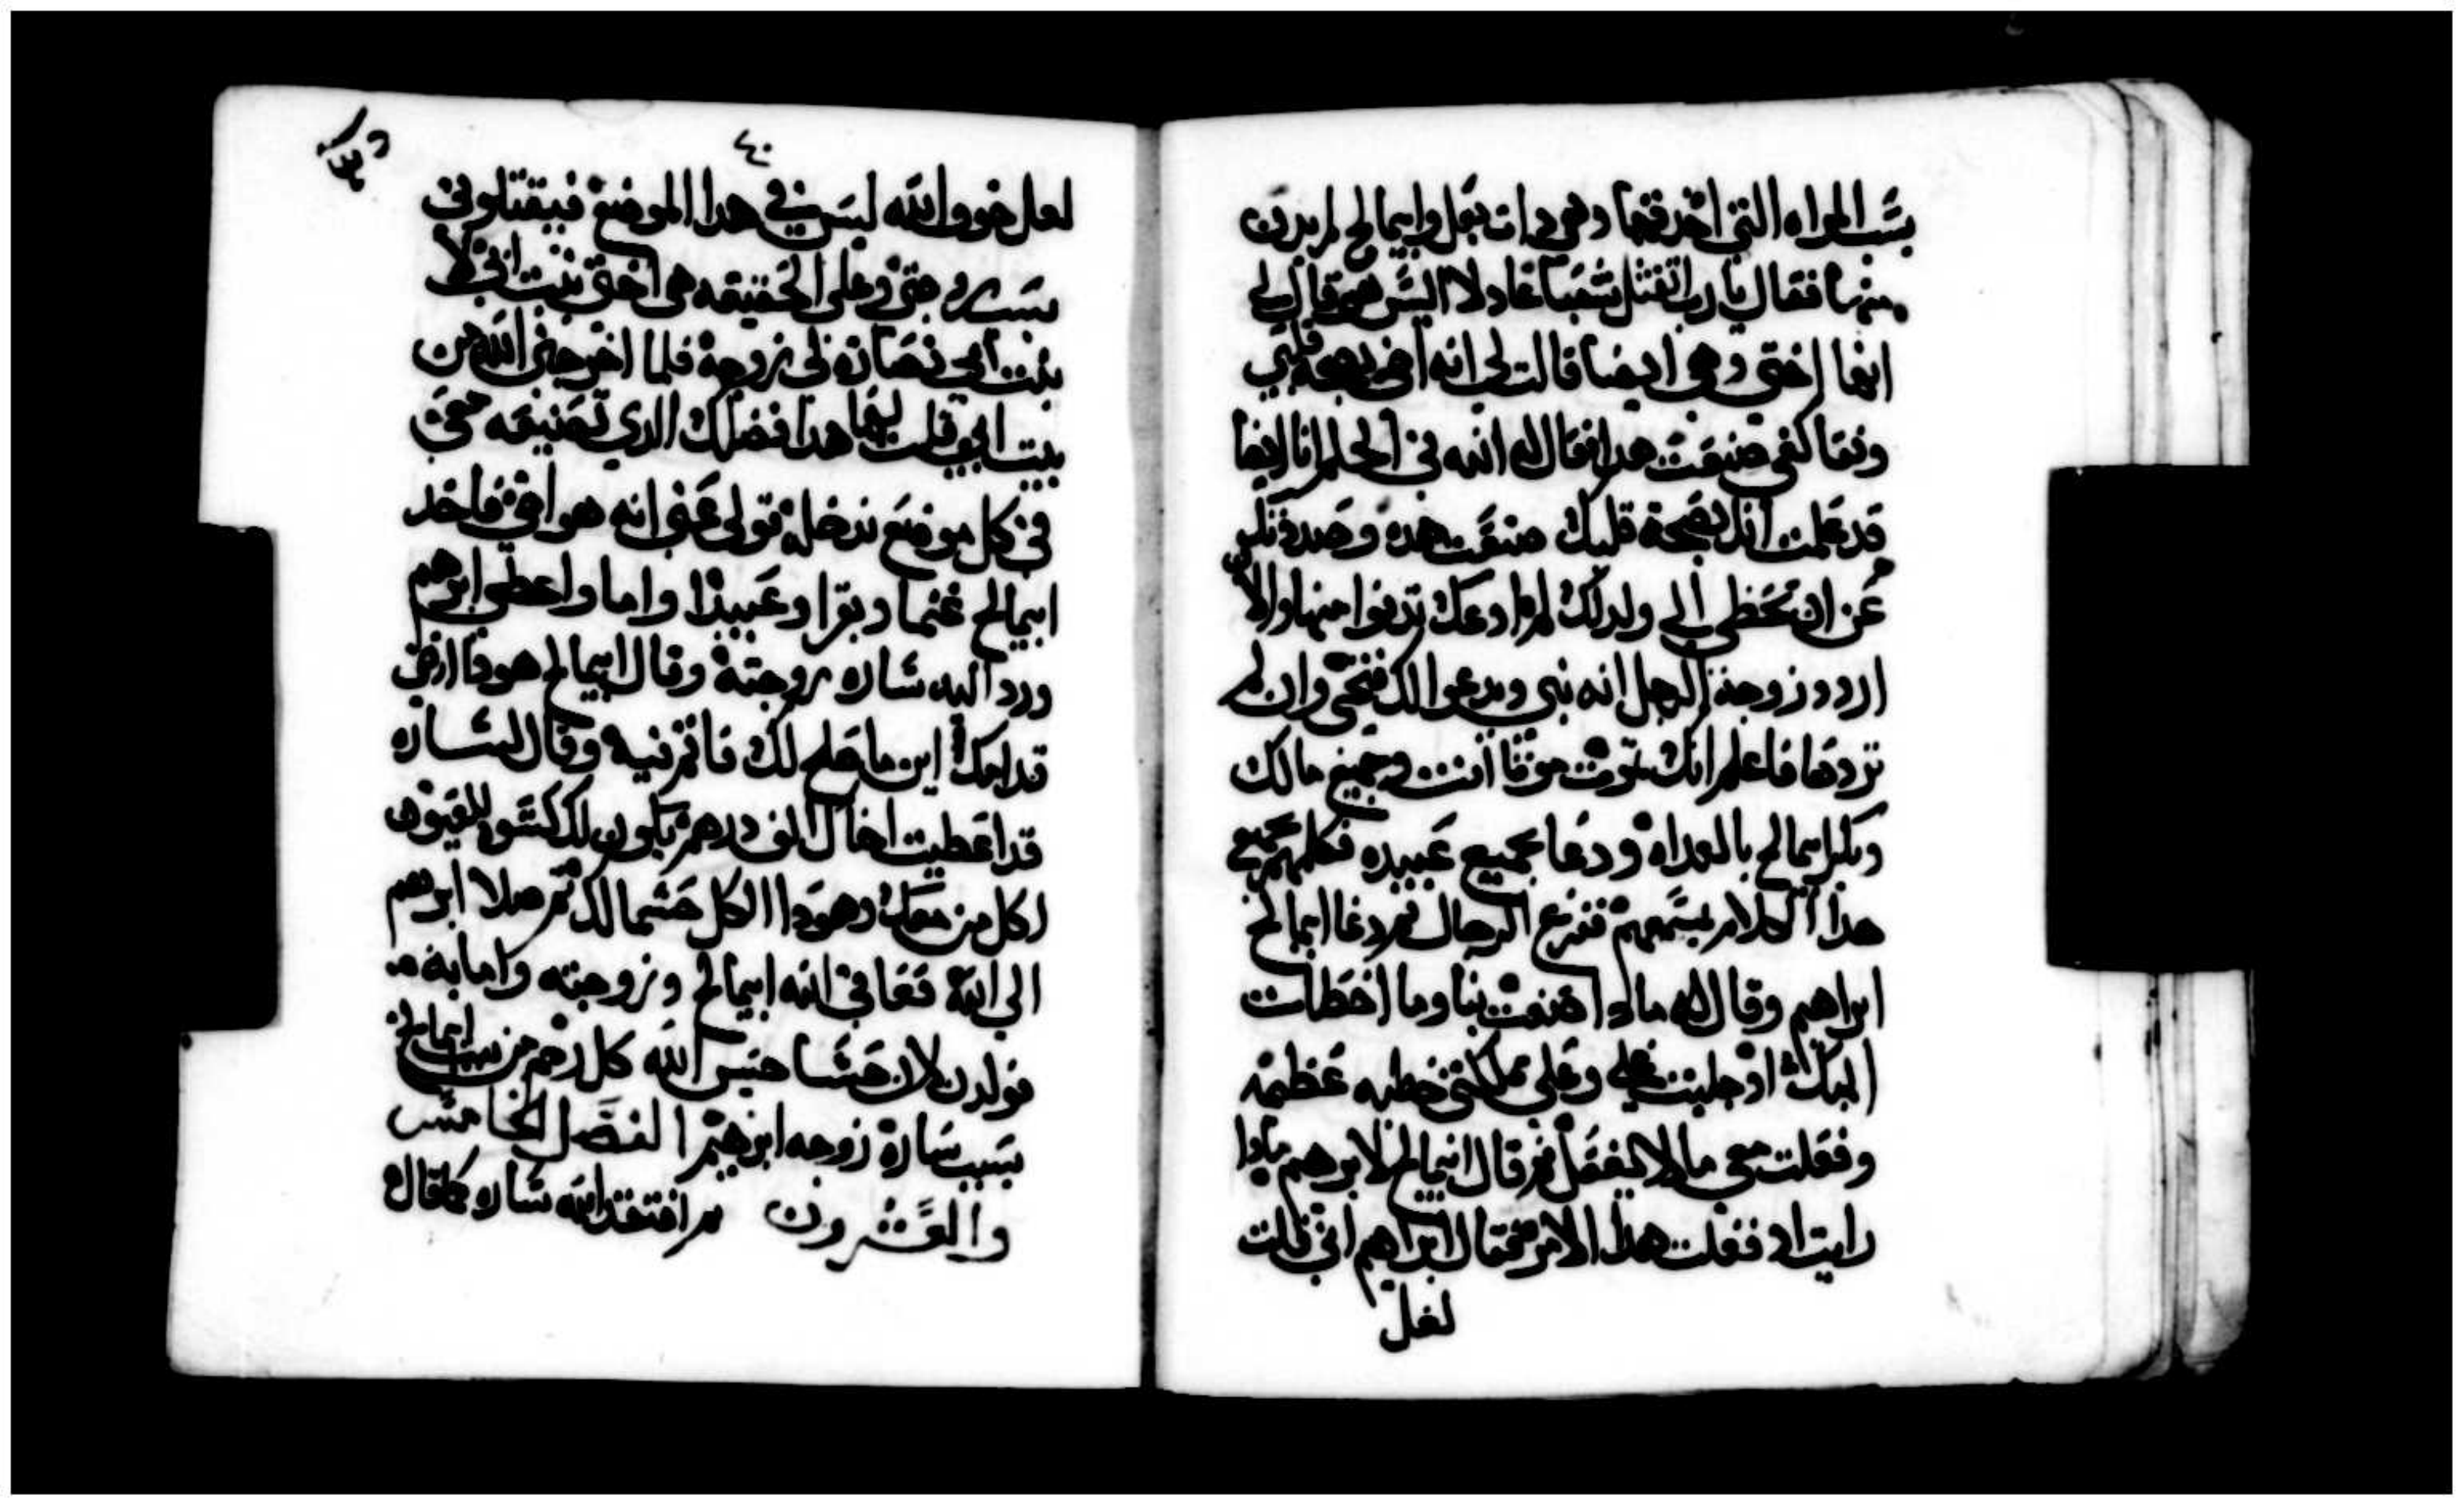 بسبب المراه التي اخدتها وهي دات بعل وابيمالخ لم يدن
منها فقال يا رب اتقتل شعبا عادلا اليس هو قال لي
انها اختي وهي ايضا قالت لي انه اخي بصحة قلبي
ونقا كفي صنعت هدا فقال له الله في الحلم انا ايضا
قد علمت انك بصحة قلبك صنعت هدا وصددتك
عن ان تخطي الي ولدلك لم ادعك تدنوا منها والان
اردد زوجة الرجل انه نبي ويدعوا لك فتحيى وان لم
تردها فاعلم انك تموت موتا انت وجميع مالك
وبكر ابيمالخ بالغداه ودعا بجميع عبيده فكلمهم بجميع
هدا الكلام بمسمعهم ففزع الرجال ثم دعا ابيمالخ
ابراهيم وقال له مادا صنعت بنا وما اخطات
اليك اد جلبت علي وعلى مملكتي خطيه عظيمه
وفعلت معي ما لا يفعل ثم قال ابيمالخ لابرهيم مادا
رايت اد فعلت هدا الامر فقال ابراهيم اني قلت
لعل
٤٠
لعل خوف الله ليس في هدا الموضع فيقتلوني
بسبب زوجتي وعلى الحقيقه هي اختي بنت ابي لا
بنت امي فصارت لي زوجة فلما اخرجني الله من
بيت ابي قلت لها هدا فضلك الدي تصنيعه معي
في كل موضع ندخله قولي عني انه هو اخي فاخد
ابيمالخ غنما وبقرا وعبيدا واما واعطى ابرهيم
ورد اليه ساره زوجته وقال ابيمالخ هودا ارضي
قدامك اين ما صلح لك فانزل فيه وقال لساره
قد اعطيت اخاك الف درهم يكون لك كسوه للعيون
لكل من معك وهودا الكل حشما لك ثم صلا ابرهيم
الى الله فعافى الله ابيمالخ وزوجته واما بنه
فولدن لان حبسا حبس الله كل رحم من بيت ابيمالخ
بسبب سارة زوجه ابرهيم الفصل الخامس
والعشرون ثم افتقد الله ساره كما قال